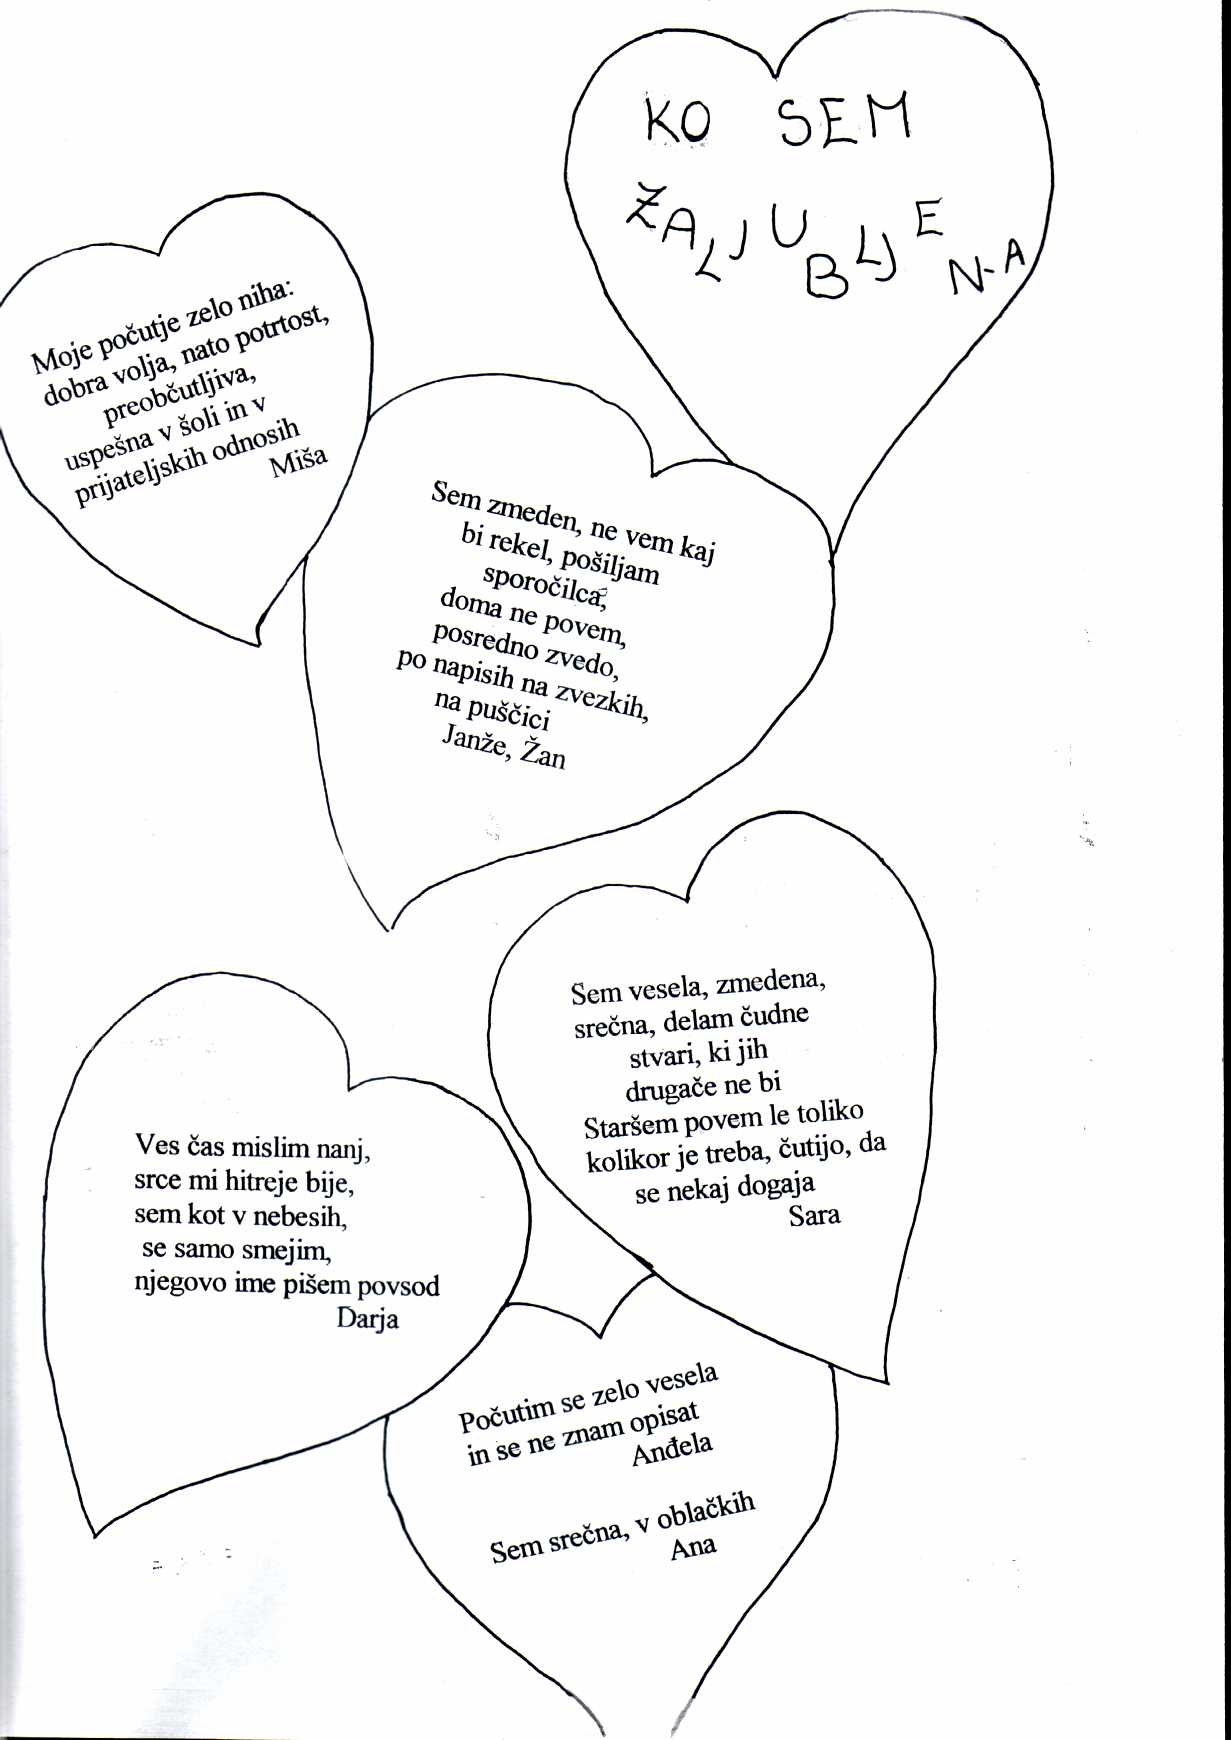 KO SEM
ŽALJUBLJEN-A
Moje počutje zelo niha:
dobra volja, nato potrtost,
preobčutljiva,
uspešna v šoli in v
prijateljskih odnosih
Miša
Sem zmeden, ne vem kaj
bi rekel, pošiljam
sporočilca,
doma ne povem,
posredno zvedo,
po napisih na zvezkih,
na puščici
Janže, Žan
Sem vesela, zmedena,
srečna, delam čudne
stvari, ki jih
drugače ne bi
Staršem povem le toliko
kolikor je treba, čutijo, da
se nekaj dogaja
Sara
Ves čas mislim nanj,
srce mi hitreje bije,
sem kot v nebesih,
se samo smejim,
njegovo ime pišem povsod
Darja
Počutim se zelo vesela
in se ne znam opisat
Anđela
Sem srečna, v oblačkih
Ana